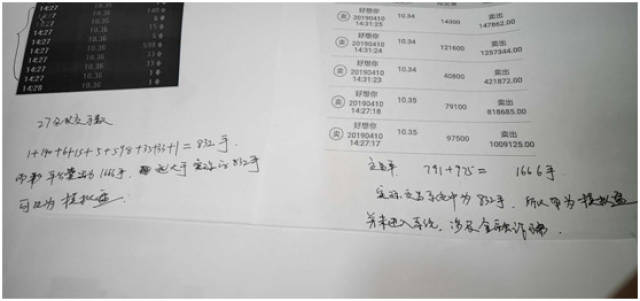 14:27 10.35 140
14:27 10.35 6
14:27 10.36 15
14:27 10.36 5
14:27 10.36 598
14:27 10.36 33
14:27 10.36 33
14:28 10.36 1
27分成交手数
1+140+6+15+5+598+33+33+1=832手
平台卖出为1666手，远大于实际的832手
可认为模拟盘
卖 好想你 20190410 14:31:25 10.34 14300 卖出 147862.00
卖 好想你 20190410 14:31:24 10.34 121600 卖出 1257344.00
卖 好想你 20190410 14:31:23 10.34 40800 卖出 421872.00
卖 好想你 20190410 14:27:18 10.35 79100 卖出 818685.00
卖 好想你 20190410 14:27:17 10.35 97500 卖出 1009125.00
791+975=1666手
实际交易系统中为832手，所以单为模拟盘
并未进入系统，涉及金融诈骗．